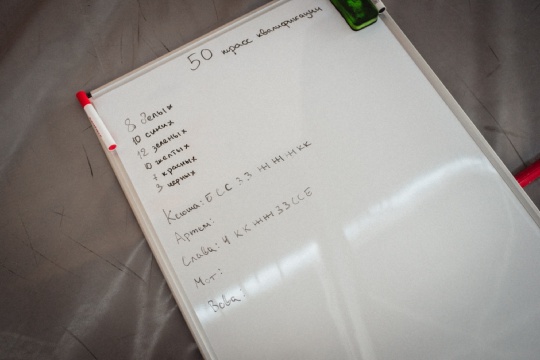 50 трасс квалификации
8 белых
10 синих
12 зеленых
10 желтых
7 красных
3 черных
Ксюша: Б С С З З Ж Ж Ч К К
Артём:
Слава: Ч К К Ж Ж З З С С Б
Мот:
Вова: